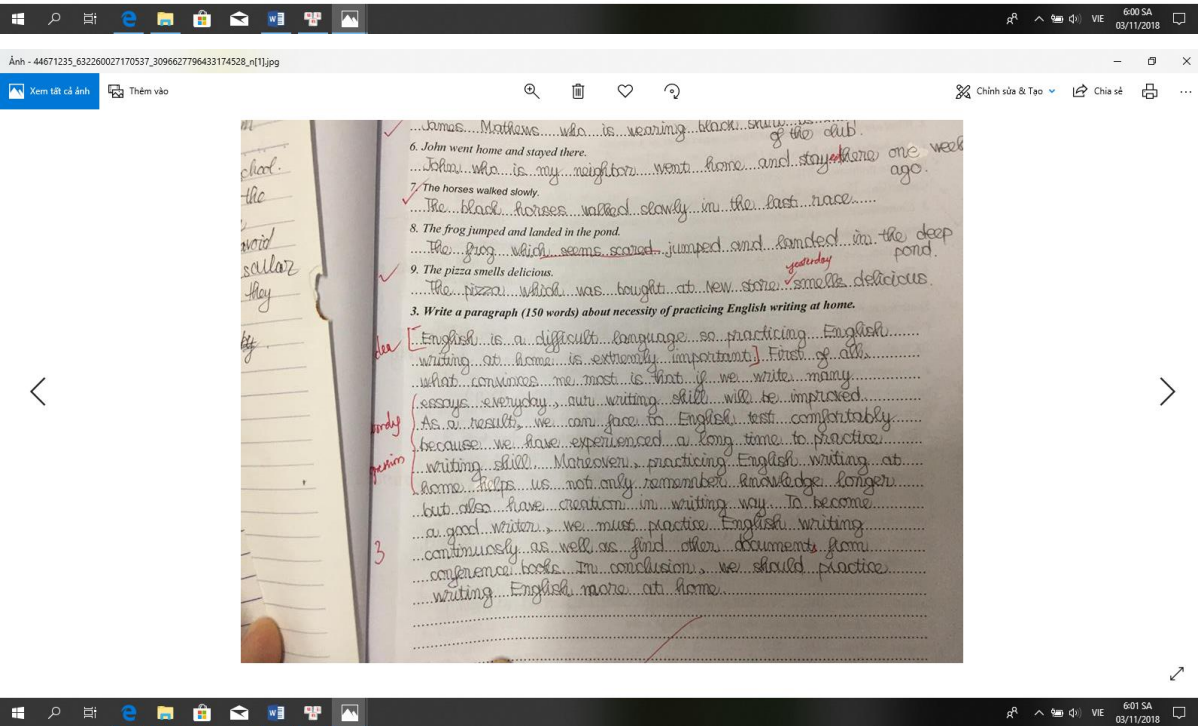 6:00 SA
VIE
03/11/2018
Ảnh - 44671235_632260027170537_3096627796433174528_n[1].jpg
Xem tất cả ảnh
Thêm vào
Chỉnh sửa & Tạo
Chia sẻ
chool.
the
avoid
they
by.
James Mathews who is wearing black
of the club.
6. John went home and stayed there.
John who is my neighbor went home and stayed there one week
ago.
7. The horses walked slowly.
The black horses walked slowly in the last race
8. The frog jumped and landed in the pond.
The frog which seems scared jumped and landed in the deep
pond.
9. The pizza smells delicious.
yesterday
The pizza which was bought at new store smells delicious.
3. Write a paragraph (150 words) about necessity of practicing English writing at home.
idea
[English is a difficult language so practicing English
writing at home is extremely important.] First of all,
what convinces me most is that if we write many
essays everyday, our writing skill will be improved.
body
As a result, we can face to English test comfortably
because we have experienced a long time to practice
writing skill. Moreover, practicing English writing at
home helps us not only remember knowledge longer
but also have creation in writing way. To become
a good writer, we must practice English writing
3
continuosly as well as find other documents from
conference books. In conclusion, we should practice
writing English more at home.
6:01 SA
VIE
03/11/2018